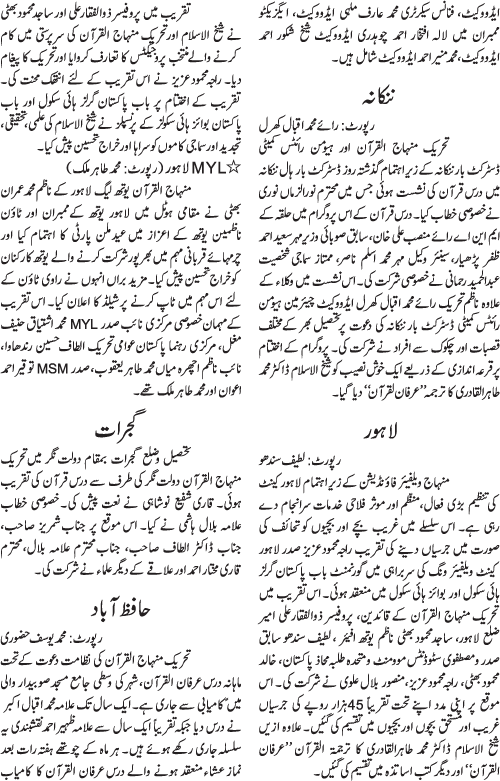 ایڈووکیٹ، فنانس سیکرٹری محمد عارف ملہی ایڈووکیٹ، ایگزیکٹو
ممبران میں لالہ افتخار احمد چوہدری ایڈووکیٹ شیخ شکور احمد
ایڈووکیٹ، محمد منیر احمد ایڈووکیٹ شامل ہیں۔
ننکانہ
رپورٹ: رائے محمد اقبال کھرل
تحریک منہاج القرآن اور ہیومن رائٹس کمیٹی
ڈسٹرکٹ بار ننکانہ کے زیر اہتمام گذشتہ روز ڈسٹرکٹ بار ہال ننکانہ
میں درس قرآن کی نشست ہوئی جس میں محترم نور الزماں نوری
نے خصوصی خطاب کیا۔ درس قرآن کے اس پروگرام میں حلقہ کے
ایم این اے رائے منصب علی خان، سابق صوبائی وزیر مہر سعید احمد
ظفر پڑھیار، سینئر وکیل مہر محمد اسلم ناصر، ممتاز سماجی شخصیت
عبدالحمید رحمانی نے خصوصی شرکت کی۔ اس نشست میں وکلاء کے
علاوہ ناظم تحریک رائے محمد اقبال کھرل ایڈووکیٹ چیئرمین ہیومن
رائٹس کمیٹی ڈسٹرکٹ بار ننکانہ کی دعوت پر تحصیل بھر کے مختلف
قصبات اور چکوک سے افراد نے شرکت کی۔ پروگرام کے اختتام
پر قرعہ اندازی کے ذریعے ایک خوش نصیب کو شیخ الاسلام ڈاکٹر محمد
طاہر القادری کا ترجمہ ’’عرفان القرآن‘‘ دیا گیا۔
لاہور
رپورٹ: لطیف سندھو
منہاج ویلفیئر فاؤنڈیشن کے زیر اہتمام لاہور کینٹ
کی تنظیم بڑی فعال، منظم اور موثر فلاحی خدمات سرانجام دے
رہی ہے۔ اس سلسلے میں غریب بچے اور بچیوں کو تحائف کی
صورت میں جرسیاں دینے کی تقریب راجہ محمود عزیز صدر لاہور
کینٹ ویلفیئر ونگ کی سربراہی میں گورنمنٹ باب پاکستان گرلز
ہائی سکول اور بوائز ہائی سکول میں منعقد ہوئی۔ اس تقریب میں
تحریک منہاج القرآن کے قائدین، پروفیسر ذوالفقار علی امیر
ضلع لاہور، ساجد محمود بھٹی ناظم یوتھ افیئر، لطیف سندھو سابق
صدر مصطفوی سٹوڈنٹس موومنٹ و متحدہ طلبہ محاذ پاکستان، خالد
محمود بھٹی، راجہ محمود عزیز، منصور بلال علوی نے شرکت کی۔ اس
موقع پر اپنی مدد آپ کے تحت تقریباً 45 ہزار روپے کی جرسیاں
غریب اور مستحق بچوں اور بچیوں میں تقسیم کی گئیں۔ علاوہ ازیں
شیخ الاسلام ڈاکٹر محمد طاہر القادری کا ترجمۃ القرآن ’’عرفان
القرآن‘‘ اور دیگر کتب اساتذہ میں تقسیم کی گئیں۔
تقریب میں پروفیسر ذوالفقار علی اور ساجد محمود بھٹی
نے شیخ الاسلام اور تحریک منہاج القرآن کی سرپرستی میں کام
کرنے والے منتخب پروجیکٹس کا تعارف کروایا اور تحریک کا پیغام
دیا۔ راجہ محمود عزیز نے اس تقریب کے لئے انتھک محنت کی۔
تقریب کے اختتام پر باب پاکستان گرلز ہائی سکول اور باب
پاکستان بوائز ہائی سکولز کے پرنسپلز نے شیخ الاسلام کی علمی، تحقیقی،
تجدید اور سماجی کاموں کو سراہا اور خراج تحسین پیش کیا۔
☆MYL لاہور (رپورٹ: محمد طاہر ملک)
منہاج القرآن یوتھ لیگ لاہور کے ناظم محمد عمران
بھٹی نے مقامی ہوٹل میں لاہور یوتھ کے ممبران اور ٹاؤن
ناظمین یوتھ کے اعزاز میں عید ملن پارٹی کا اہتمام کیا اور
چرمہائے قربانی مہم میں بھرپور شرکت کرنے والے یوتھ کارکنان
کو خراج تحسین پیش کیا۔ مزید برآں انہوں نے راوی ٹاؤن کے
لئے اس مہم میں ٹاپ کرنے پر شیلڈ کا اعلان کیا۔ اس تقریب
کے مہمان خصوصی مرکزی نائب صدر MYL محمد اشتیاق حنیف
مغل، مرکزی رہنما پاکستان عوامی تحریک الطاف حسین رندھاوا،
نائب ناظم اچھرہ میاں محمد طاہر یعقوب، صدر MSM توقیر احمد
اعوان اور محمد طاہر ملک تھے۔
گجرات
تحصیل و ضلع گجرات بمقام دولت نگر میں تحریک
منہاج القرآن دولت نگر کی طرف سے درس قرآن کی تقریب
ہوئی۔ قاری شفیع نوشاہی نے نعت پیش کی۔ خصوصی خطاب
علامہ بلال ہاشمی نے کیا۔ اس موقع پر جناب شمریز صاحب،
جناب ڈاکٹر الطاف صاحب، جناب محترم علامہ بلال، محترم
قاری مختار احمد اور علاقے کے دیگر علماء نے شرکت کی۔
حافظ آباد
رپورٹ: محمد یوسف حضوری
تحریک منہاج القرآن کی نظامت دعوت کے تحت
ماہانہ درس عرفان القرآن، شہر کی وسطی جامع مسجد صوبیدار والی
میں کامیابی سے جاری ہے۔ ایک سال تک علامہ محمد اقبال اکبر
نے درس دیا جبکہ تقریباً ایک سال سے علامہ ظہیر احمد نقشبندی یہ
سلسلہ جاری رکھے ہوئے ہیں۔ ہر ماہ کے چوتھے ہفتہ رات بعد
نماز عشاء منعقد ہونے والے درس عرفان القرآن کا کامیاب